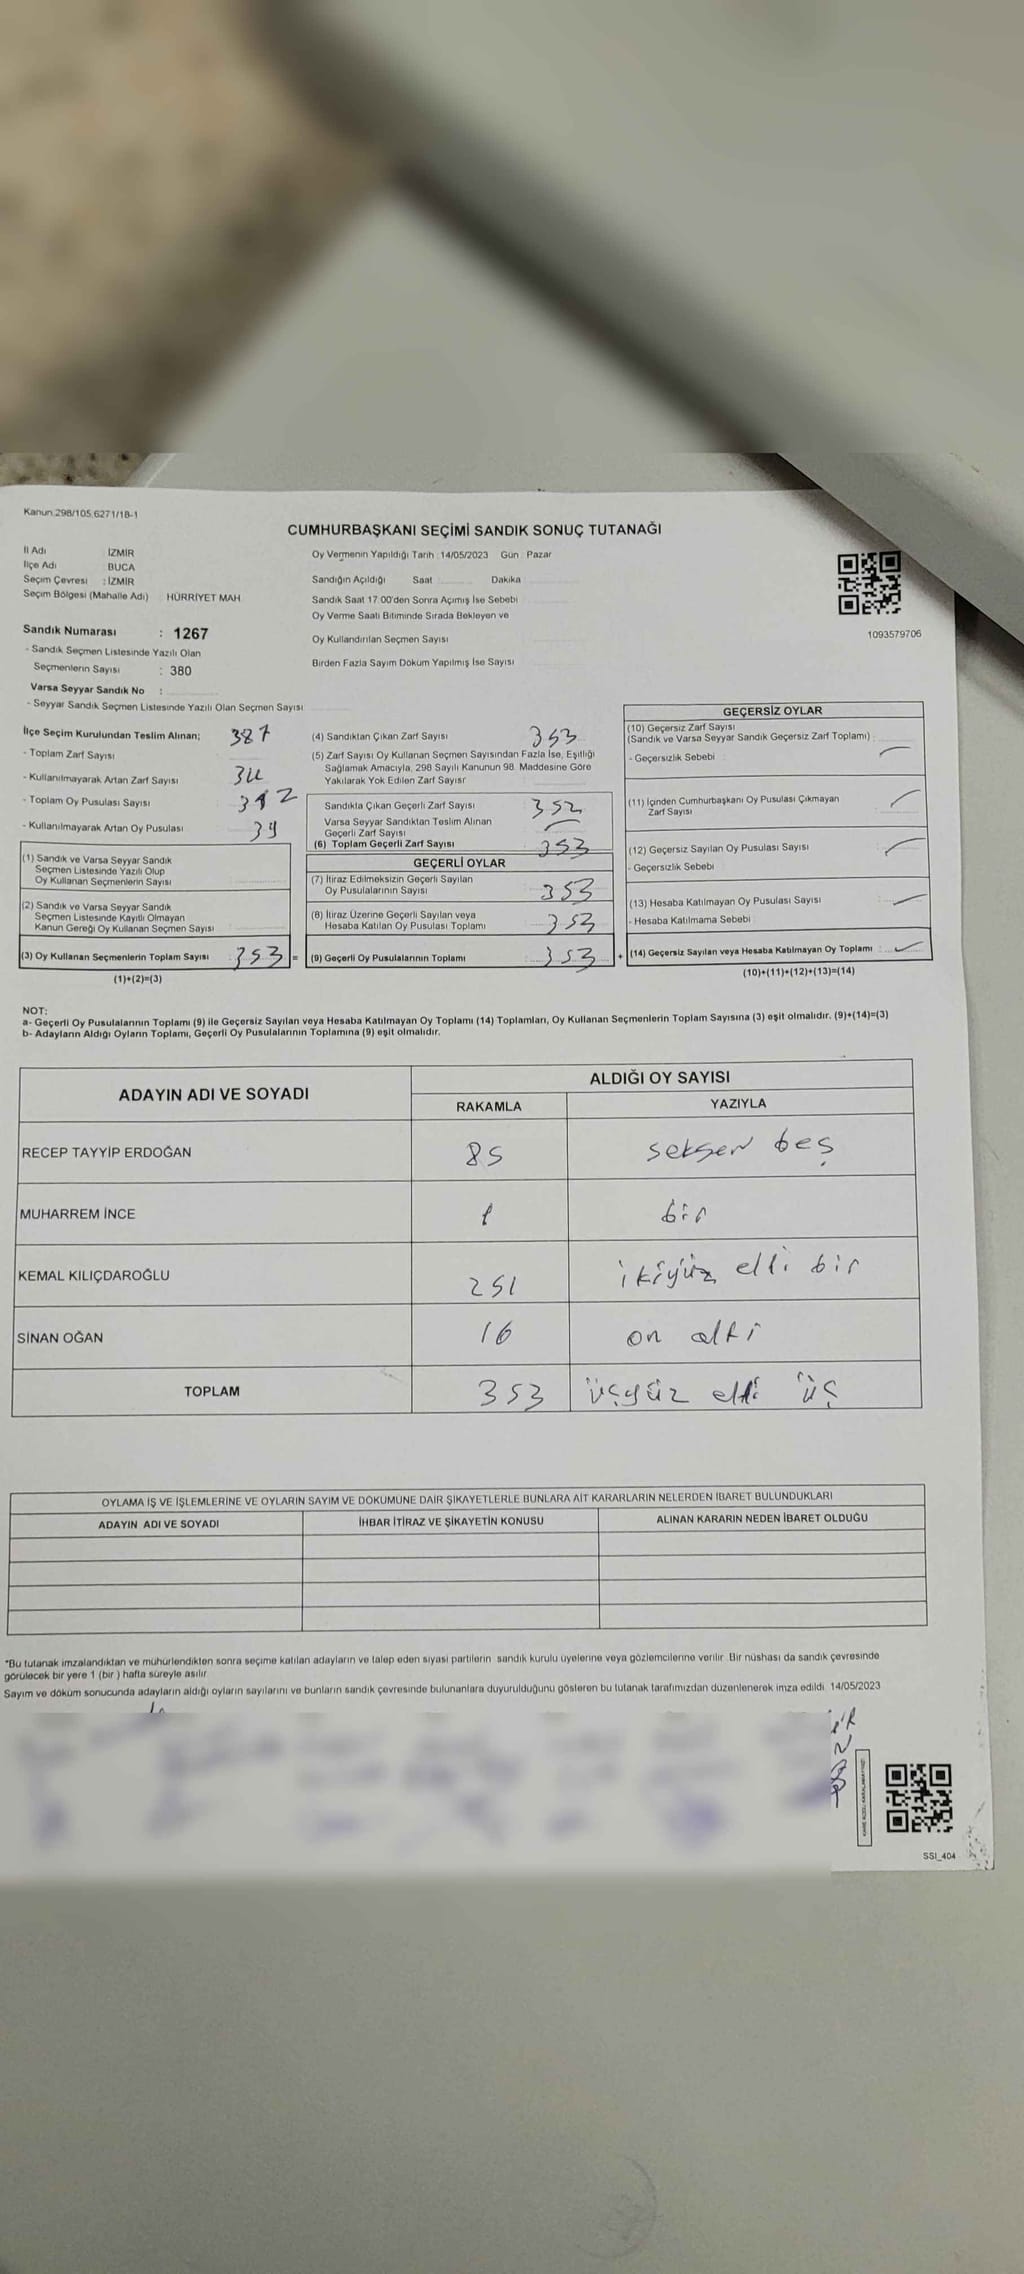 Kanun.298/105,6271/18-1
CUMHURBAŞKANI SEÇİMİ SANDIK SONUÇ TUTANAĞI
İl Adı İZMİR
İlçe Adı BUCA
Seçim Çevresi : İZMİR
Seçim Bölgesi (Mahalle Adı) HÜRRİYET MAH.
Sandık Numarası : 1267
- Sandık Seçmen Listesinde Yazılı Olan
Seçmenlerin Sayısı : 380
Varsa Seyyar Sandık No :
- Seyyar Sandık Seçmen Listesinde Yazılı Olan Seçmen Sayısı
Oy Vermenin Yapıldığı Tarih : 14/05/2023 Gün : Pazar
Sandığın Açıldığı Saat Dakika
Sandık Saat 17.00'den Sonra Açımış İse Sebebi
Oy Verme Saati Bitiminde Sırada Bekleyen ve
Oy Kullandırılan Seçmen Sayısı
Birden Fazla Sayım Döküm Yapılmış İse Sayısı
1093579706
İlçe Seçim Kurulundan Teslim Alınan; 387
- Toplam Zarf Sayısı
- Kullanılmayarak Artan Zarf Sayısı 34
- Toplam Oy Pusulası Sayısı
- Kullanılmayarak Artan Oy Pusulası
(1) Sandık ve Varsa Seyyar Sandık
Seçmen Listesinde Yazılı Olup
Oy Kullanan Seçmenlerin Sayısı
(2) Sandık ve Varsa Seyyar Sandık
Seçmen Listesinde Kayıtlı Olmayan
Kanun Gereği Oy Kullanan Seçmen Sayısı
(3) Oy Kullanan Seçmenlerin Toplam Sayısı : 353 =
(1)+(2)=(3)
(4) Sandıktan Çıkan Zarf Sayısı 353
(5) Zarf Sayısı Oy Kullanan Seçmen Sayısından Fazla İse, Eşitliği
Sağlamak Amacıyla, 298 Sayılı Kanunun 98. Maddesine Göre
Yakılarak Yok Edilen Zarf Sayısı
Sandıkta Çıkan Geçerli Zarf Sayısı 352
Varsa Seyyar Sandıktan Teslim Alınan
Geçerli Zarf Sayısı
(6) Toplam Geçerli Zarf Sayısı 353
GEÇERLİ OYLAR
(7) İtiraz Edilmeksizin Geçerli Sayılan
Oy Pusulalarının Sayısı 353
(8) İtiraz Üzerine Geçerli Sayılan veya
Hesaba Katılan Oy Pusulası Toplamı 353
(9) Geçerli Oy Pusulalarının Toplamı 353 +
GEÇERSİZ OYLAR
(10) Geçersiz Zarf Sayısı
(Sandık ve Varsa Seyyar Sandık Geçersiz Zarf Toplamı) :
- Geçersizlik Sebebi
(11) İçinden Cumhurbaşkanı Oy Pusulası Çıkmayan
Zarf Sayısı
(12) Geçersiz Sayılan Oy Pusulası Sayısı
- Geçersizlik Sebebi
(13) Hesaba Katılmayan Oy Pusulası Sayısı
- Hesaba Katılmama Sebebi
(14) Geçersiz Sayılan veya Hesaba Katılmayan Oy Toplamı :
(10)+(11)+(12)+(13)=(14)
NOT:
a- Geçerli Oy Pusulalarının Toplamı (9) ile Geçersiz Sayılan veya Hesaba Katılmayan Oy Toplamı (14) Toplamları, Oy Kullanan Seçmenlerin Toplam Sayısına (3) eşit olmalıdır. (9)+(14)=(3)
b- Adayların Aldığı Oyların Toplamı, Geçerli Oy Pusulalarının Toplamına (9) eşit olmalıdır.
ADAYIN ADI VE SOYADI ALDIĞI OY SAYISI
RAKAMLA YAZIYLA
RECEP TAYYİP ERDOĞAN 85 seksen beş
MUHARREM İNCE 1 bir
KEMAL KILIÇDAROĞLU 251 ikiyüz elli bir
SİNAN OĞAN 16 on altı
TOPLAM 353 üçyüz elli üç
OYLAMA İŞ VE İŞLEMLERİNE VE OYLARIN SAYIM VE DÖKÜMÜNE DAİR ŞİKAYETLERLE BUNLARA AİT KARARLARIN NELERDEN İBARET BULUNDUKLARI
ADAYIN ADI VE SOYADI İHBAR İTİRAZ VE ŞİKAYETİN KONUSU ALINAN KARARIN NEDEN İBARET OLDUĞU
*Bu tutanak imzalandıktan ve mühürlendikten sonra seçime katılan adayların ve talep eden siyasi partilerin sandık kurulu üyelerine veya gözlemcilerine verilir. Bir nüshası da sandık çevresinde
görülecek bir yere 1 (bir) hafta süreyle asılır.
Sayım ve döküm sonucunda adayların aldığı oyların sayılarını ve bunların sandık çevresinde bulunanlara duyurulduğunu gösteren bu tutanak tarafımızdan düzenlenerek imza edildi. 14/05/2023
SSI_404